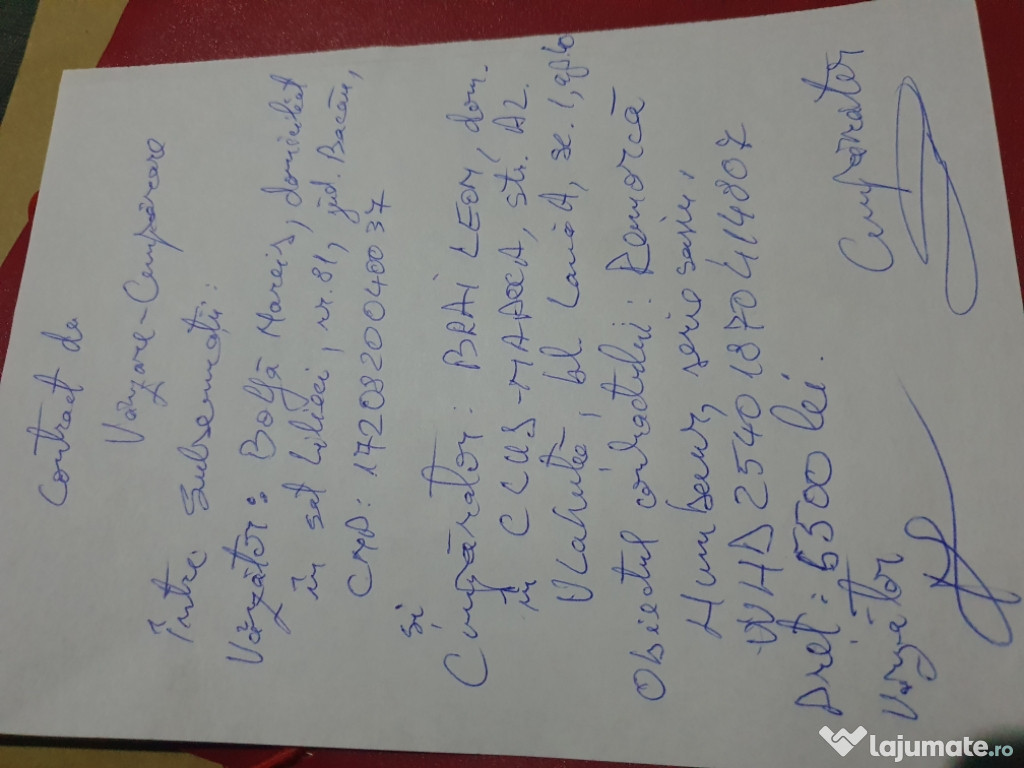 Contract de
Vânzare-Cumpărare
Între subsemnații:
Vânzător: Bolfă Marcis, domiciliat
în sat Lilieci, nr. 81, jud. Bacău,
CNP: 1720820040037
și
Cumpărător: BRAI LEON, dom.
în CCUS-MAPOCA, str. A 2.
Vlahută, bl. Lamă A, sc. 1, ap
Obiectul contractului: Remorcă
Humbaur, serie sasiu,
WHD25401870414807
Preț: 5500 lei.
Vânzător Cumpărător
lajumate.ro